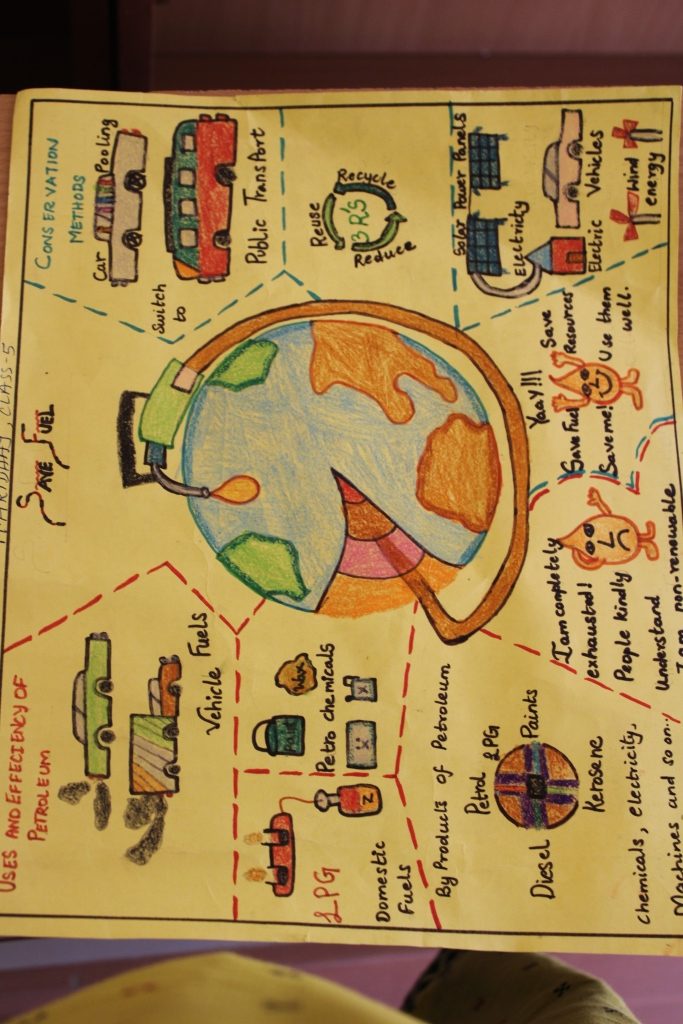 , CLASS-5
SAVE FUEL
USES AND EFFECIENCY OF
PETROLEUM
Vehicle Fuels
Paint
Wax
Petro chemicals
LPG
Domestic
Fuels
By Products of Petroleum
Petrol LPG
Paints
Diesel
Kerosene
chemicals, electricity,
Machines and so on...
I am completely
exhausted!
People kindly
Understand
I am non-renewable
Yaay!!! Save
Save Fuel Resources
Save me! Use them
well.
CONSERVATION
METHODS
Car Pooling
Switch
to
Public Transport
Reuse
Recycle
3R'S
Reduce
Solar Power Panels
Electricity
Electric Vehicles
Wind
energy